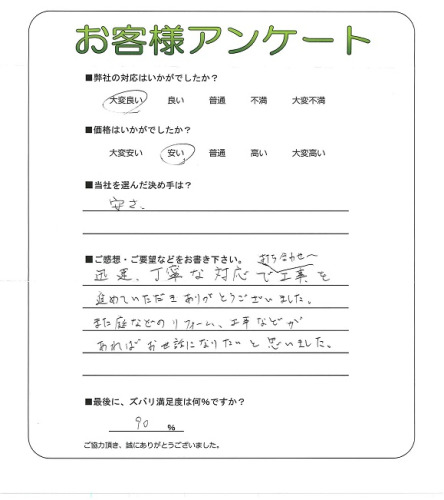 お客様アンケート
■弊社の対応はいかがでしたか？
大変良い 良い 普通 不満 大変不満
■価格はいかがでしたか？
大変安い 安い 普通 高い 大変高い
■当社を選んだ決め手は？
安さ、
■ご感想・ご要望などをお書き下さい。
打ち合わせ〜
迅速、丁寧な対応で工事を
進めていただきありがとうございました。
また庭などのリフォーム、工事などが
あればお世話になりたいと思いました。
■最後に、ズバリ満足度は何％ですか？
90 ％
ご協力頂き、誠にありがとうございました。